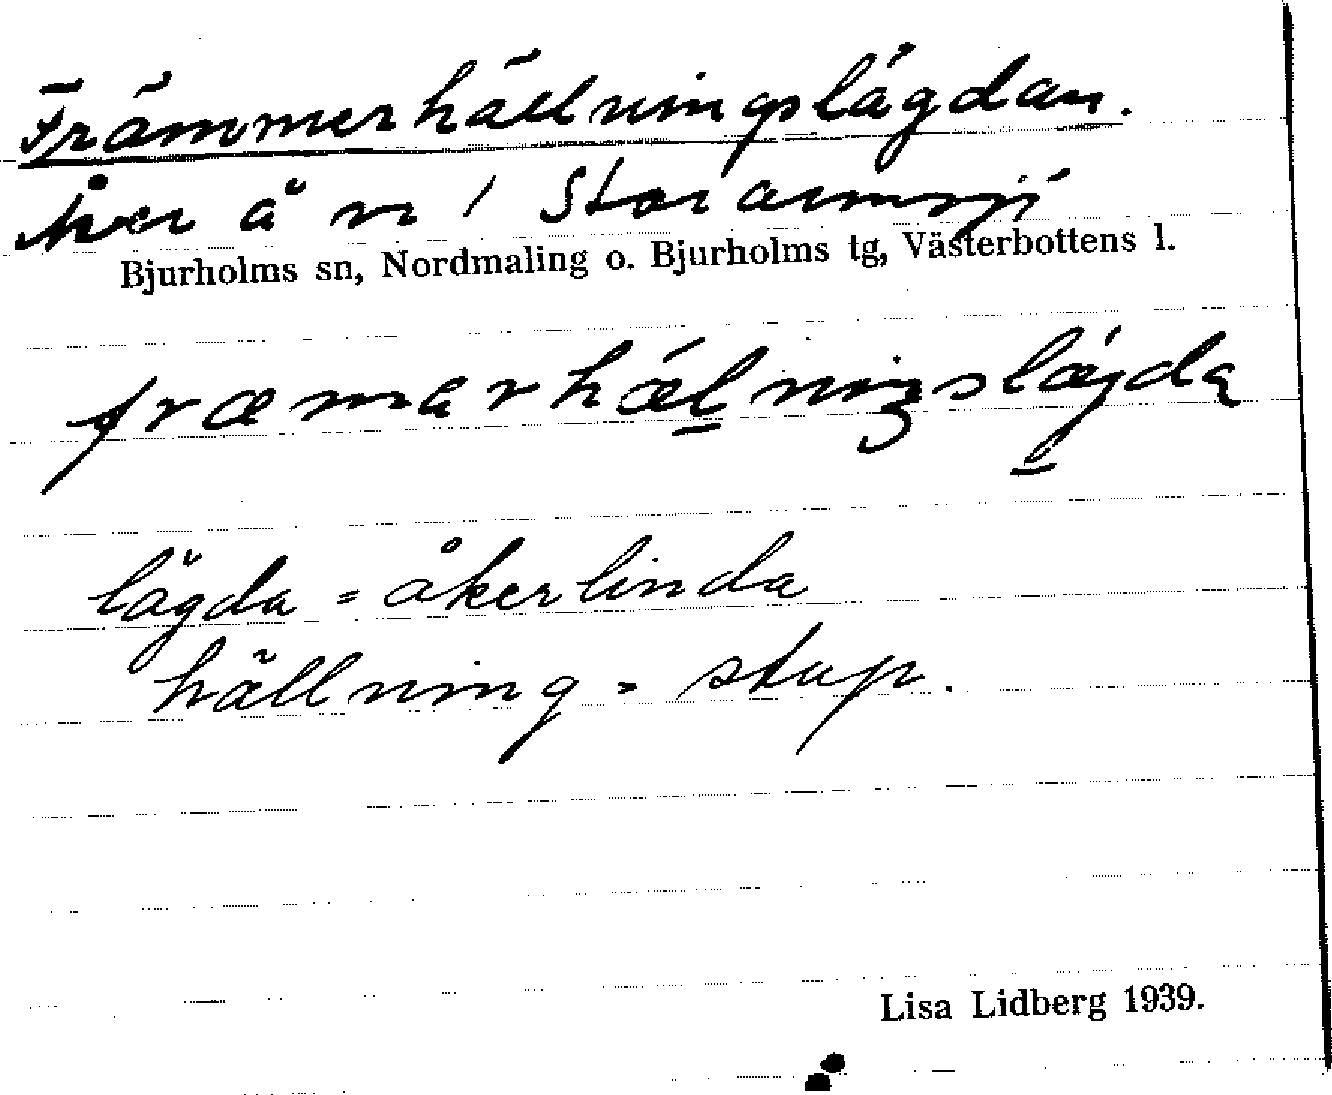 Främmerhällningslägdan.
Åker å nr 1 Storarmsjö
Bjurholms sn, Nordmaling o. Bjurholms tg, Västerbottens l.
fræmarhælniŋslægda
lägda = åkerlinda
hällning = stup.
Lisa Lidberg 1939.